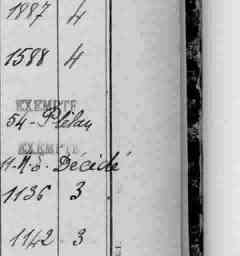 1887 4
1588 4
EXEMPTE
54 - Plélan
EXEMPTE
11-N-S- Décédé
1136 3
1142 - 3